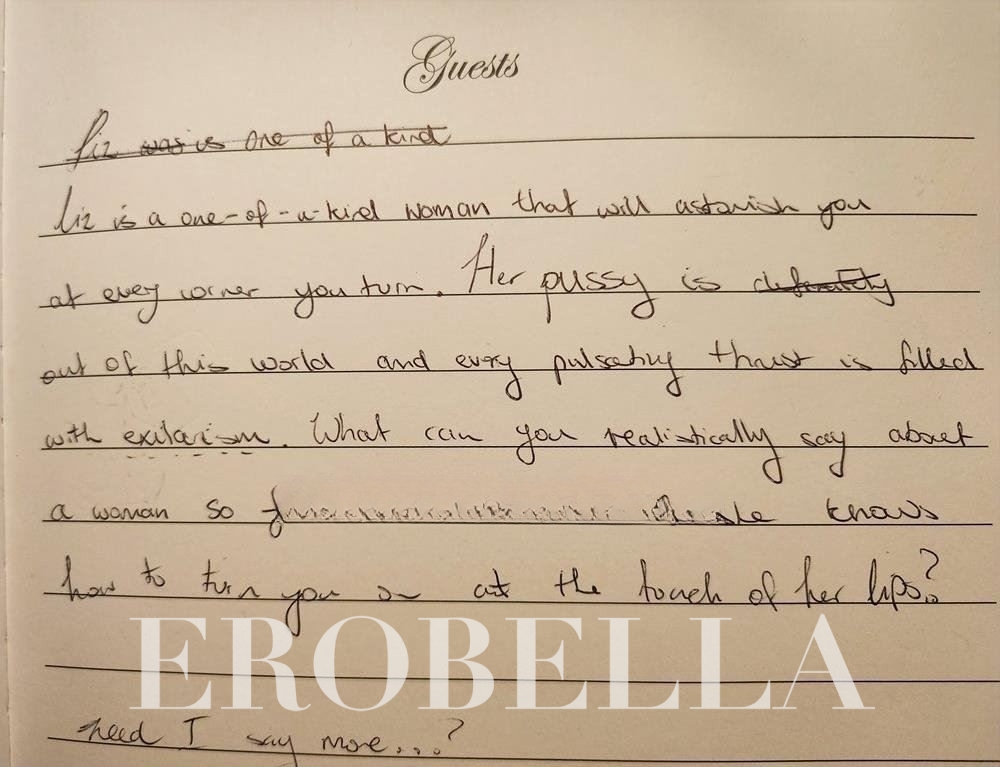 Guests
Liz was is one of a kind
Liz is a one-of-a-kind woman that will astonish you
at every corner you turn. Her pussy is definitely
out of this world and every pulsating thrust is filled
with exilarism. What can you realistically say about
a woman so she knows
how to turn you on at the touch of her lips?
EROBELLA
need I say more...?